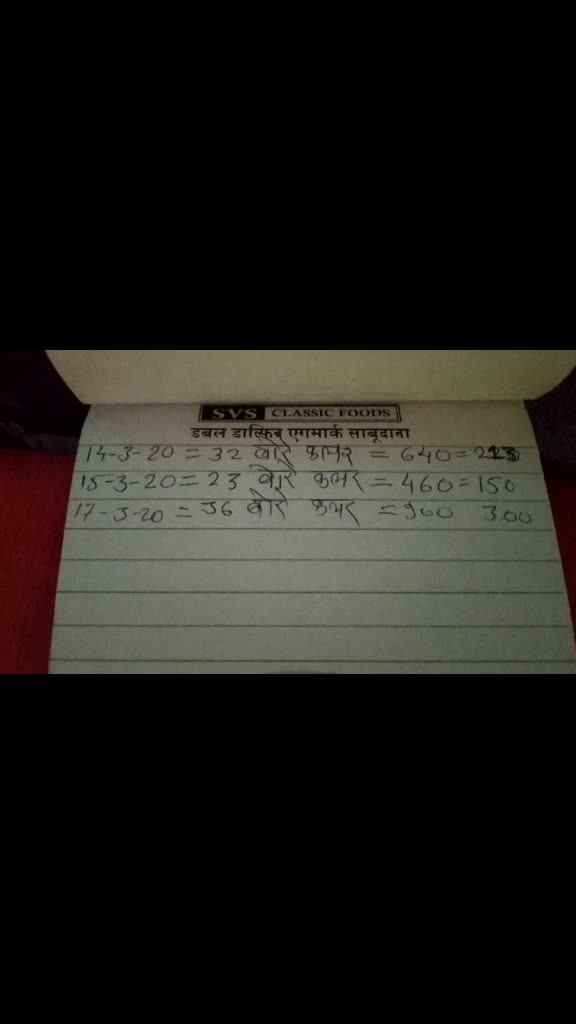 SVS CLASSIC FOODS
डबल डाल्फिन एगमार्क साबूदाना
14-3-20 = 32 बोरे कमर = 640 =
15-3-20 = 23 बोरे कमर = 460 = 150
17-3-20 = 36 बोरे कमर = 900 300